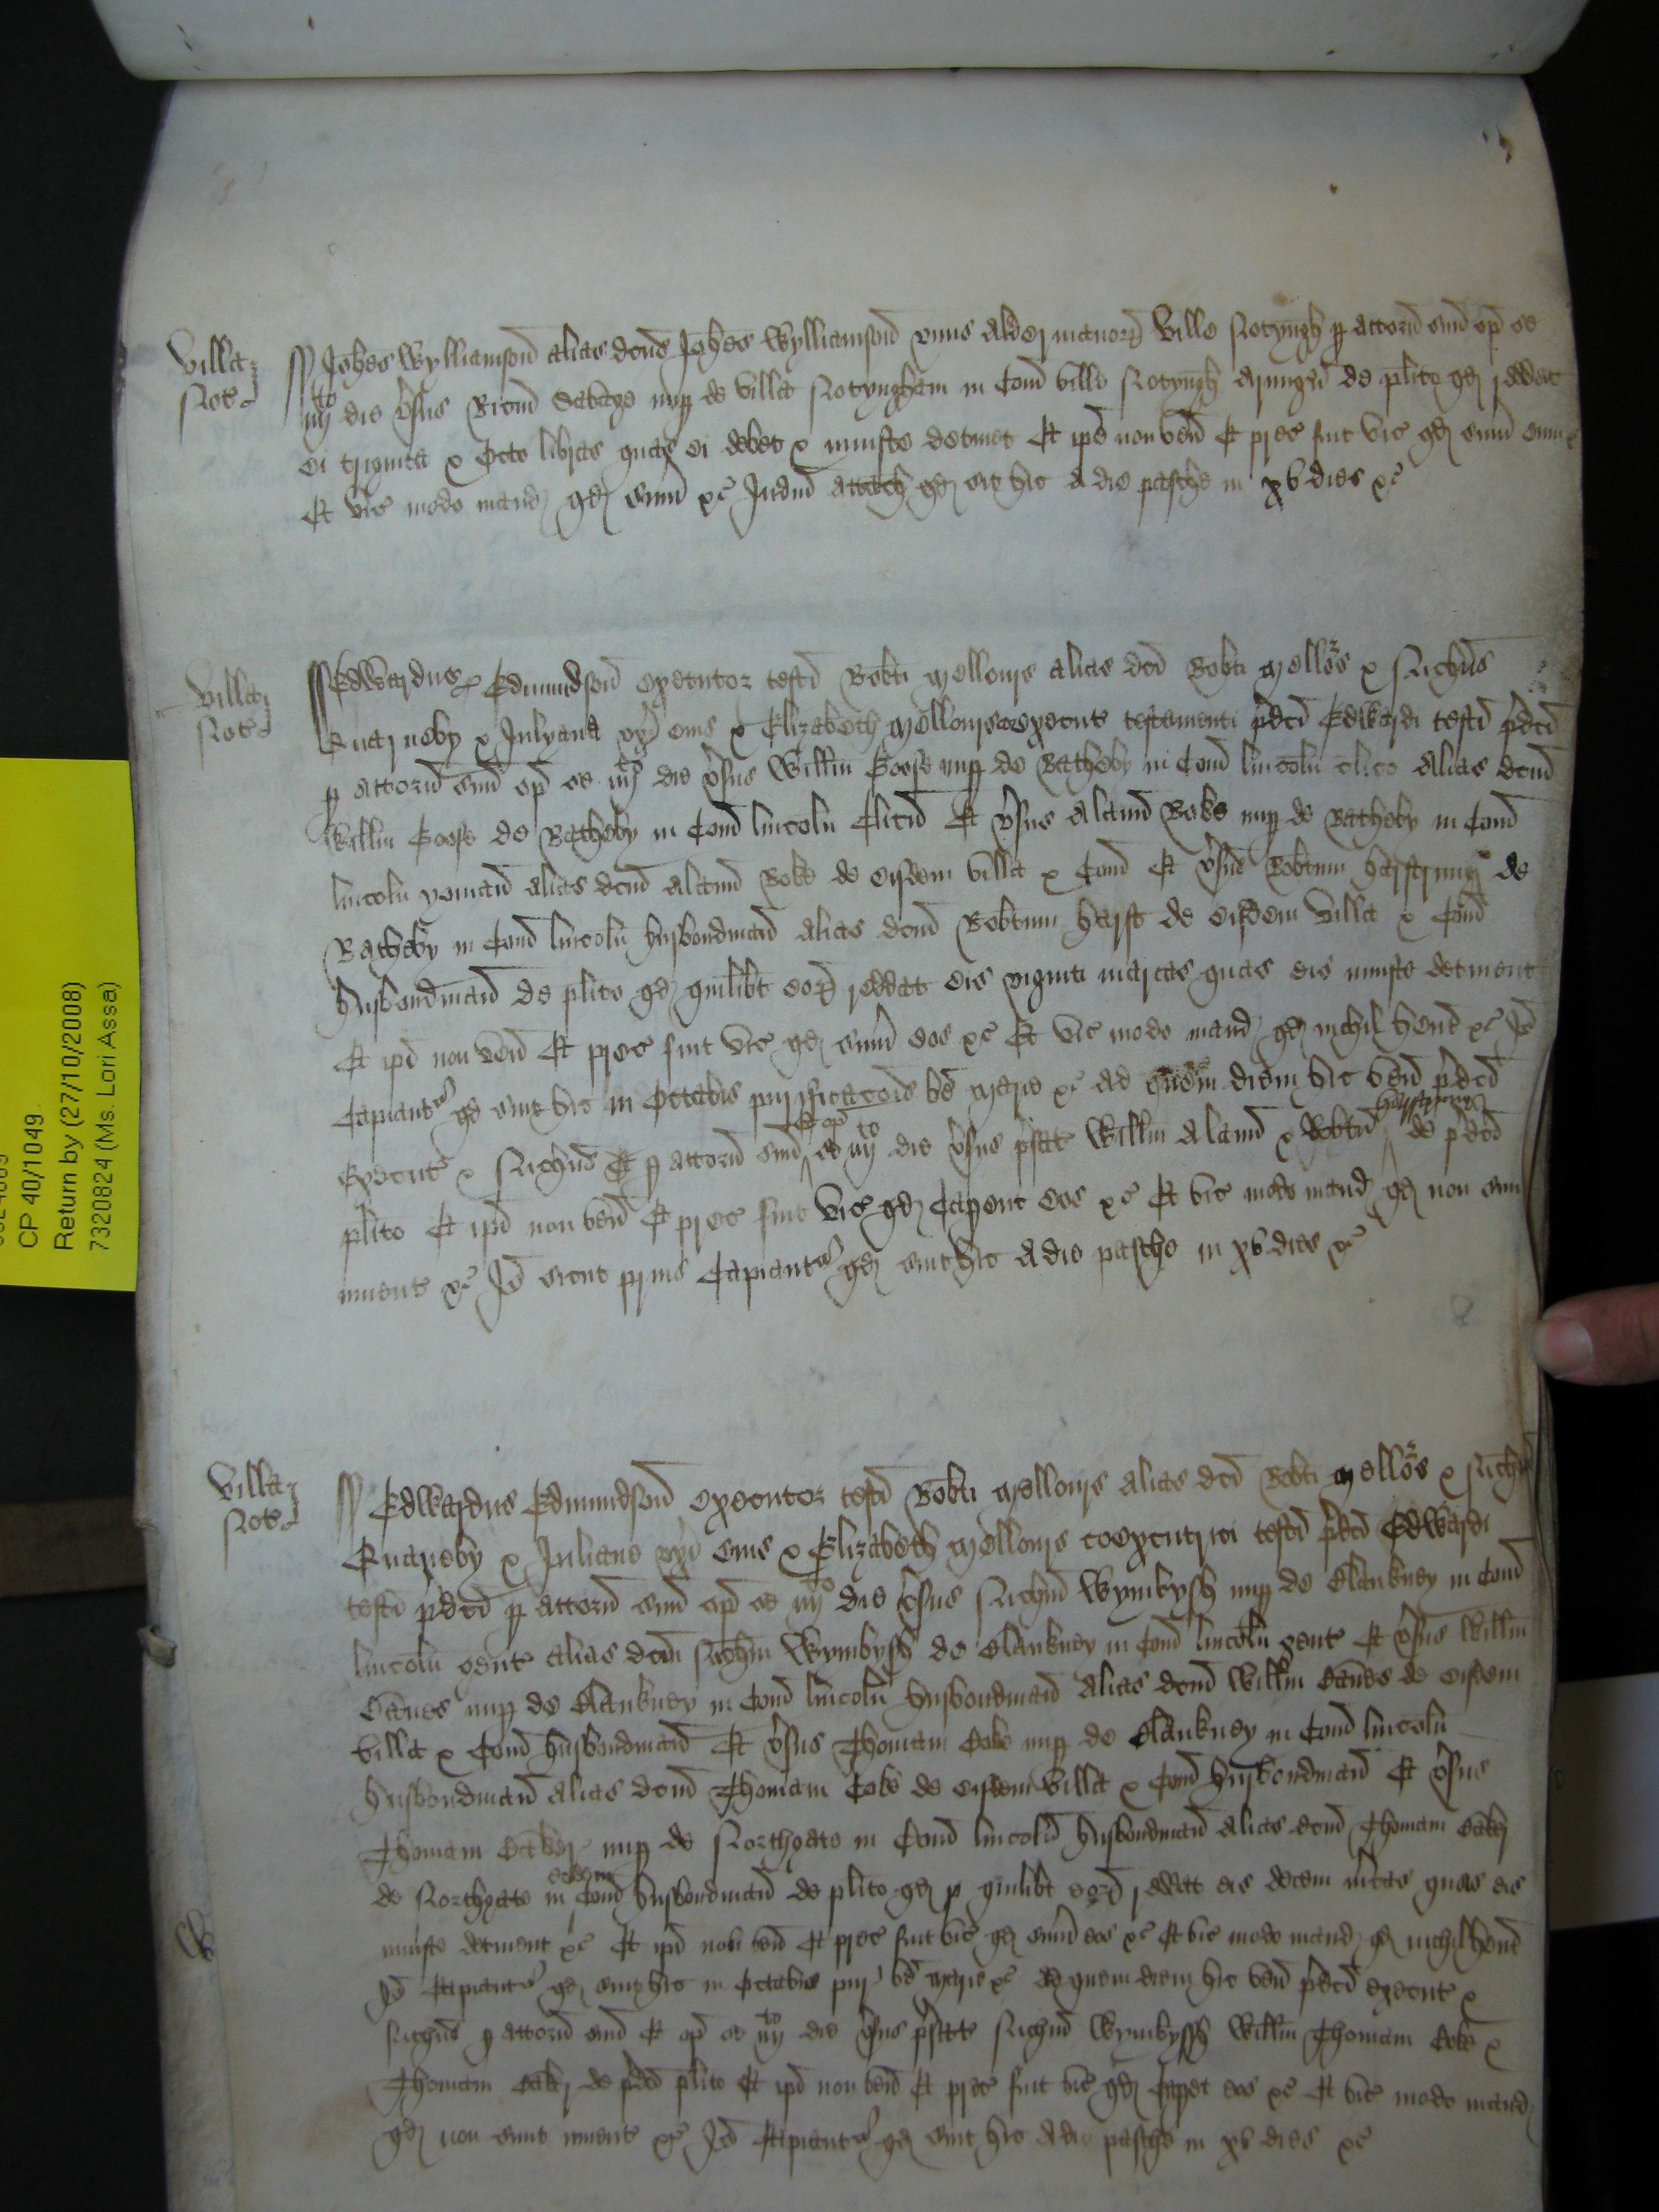 Villa
Not
Johes Wylliamson alias dcus Johes Wylliamson unus Aldermanor Ville Notyngh p attorn suu op se
iiij to die vsus Ricm Sabage nup de villa Notyngham in Com ville Notyngh de plito qd reddat
ei triginta & octo libras quas ei debet & iniuste detinet Et ipe non ven Et prec fuit vic qd sum eum &c
Et vic modo mand qd sum &c Iudm attach qd sit hic a die pasche in xv dies &c
Villa
Not
Edwardus Edmundson executor testi Robti Mellours alias dci Robti Mellors & Nichus
Quarneby & Julyana ux eius & Elizabeth Mellours coexecut testamenti pdci Edwardi testi pdci
p attorn suu op se iiij to die vsus Willm Goose nup de Batheby in Com lincoln clico alias dcm
Willm Goose de Batheby in Com lincoln Clicu Et vsus Alanu Boke nup de Batheby in Com
lincoln yoman alias dcm Alanu Boke de eisdem villa & Com Et vsus Robtum de
Batheby in Com lincoln husbondman alias dcm Robtum de eisdem villa & Com
husbondman de plito qd quilibt eor reddat eis viginti marcas quas eis iniuste detinent
Et ipi non ven Et prec fuit vic qd sum eos &c Et vic modo mand qd nichil hent &c Io
Capiantr qd sint hic in Octabis purificacois be Marie &c Ad quem diem hic ven pdci
Execut & Nichus p attorn suu et op se iiij to die vsus pfat Willm Alanu & Robtu de pdco
plito Et ipi non ven Et prec fuit vic qd Caperet eos &c Et vic modo mand qd non sunt
invent &c Io sicut prius Capiantr qd sint hic a die pasche in xv dies &c
Villa
Not
Edwardus Edmundson executor testi Robti Mellours alias dci Robti Mellors & Nichus
Quarneby & Juliana ux eius & Elizabeth Mellours coexecutrici testi pdci Edwardi
testi pdci p attorn suu op se iiij to die vsus Nichm Wymbyssh nup de Blankney in Com
lincoln gent alias dcm Nichm Wymbyssh de Blankney in Com lincoln gent Et vsus Willm
nup de Blankney in Com lincoln husbondman alias dcm Willm de eisdem
villa & Com husbondman Et vsus Thomam Coke nup de Blankney in Com lincoln
husbondman alias dcm Thomam Coke de eisdem villa & Com husbondman Et vsus
Thomam nup de Northgate in Com lincoln husbondman alias dcm Thomam
de Northgate in eodem Com husbondman de plito qd quilibt eor reddat eis decem mrcas quas eis
iniuste detinent &c Et ipi non ven Et prec fuit vic qd sum eos &c Et vic modo mand qd nichil hent
Io Capiantr qd sint hic in Octabis pur be Marie &c Ad quem diem hic ven pdci execut &
Nichus p attorn suu Et op se iiij to die vsus pfat Nichm Wymbyssh Willm Thomam Coke &
Thomam de pdco plito Et ipi non ven Et prec fuit vic qd Caperet eos &c Et vic modo mand
qd non sunt invent &c Io Capiantr qd sint hic a die pasche in xv dies &c
CP 40/1049
Return by (27/10/2008)
7320824 (Ms. Lori Assa)